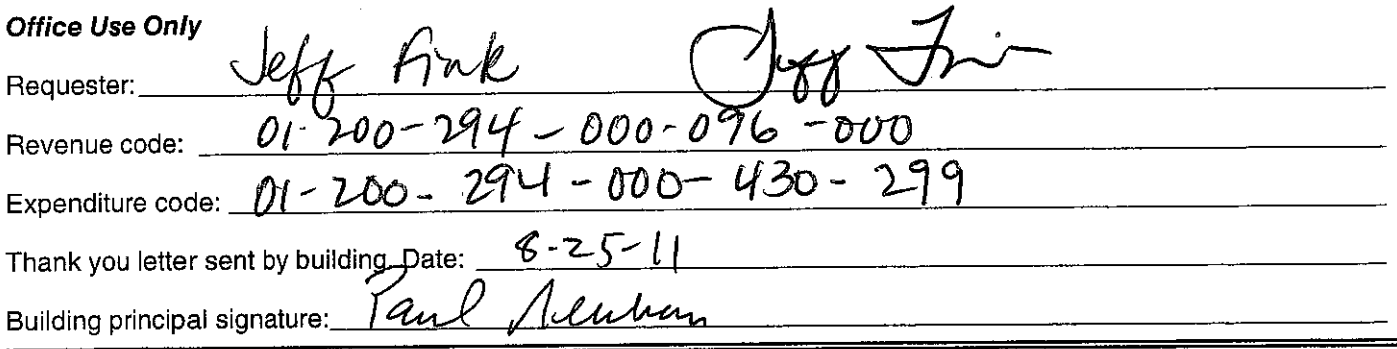 Office Use Only
Requester: Jeff Fink Jeff
Revenue code: 01-200-294-000-096-000
Expenditure code: 01-200-294-000-430-299
Thank you letter sent by building. Date: 8-25-11
Building principal signature: Paul